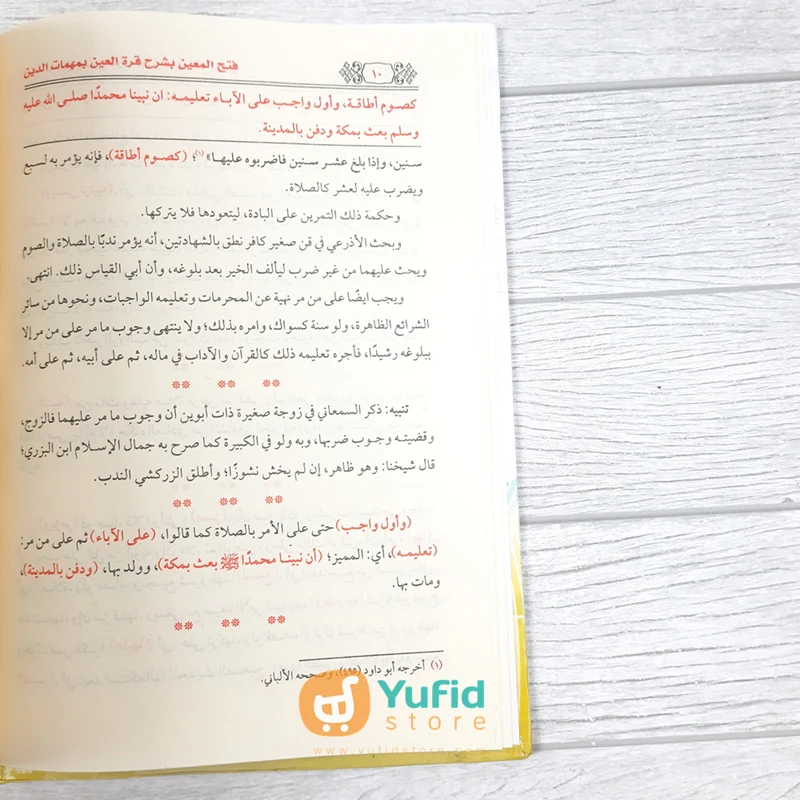 فتح المعين بشرح قرة العين بمهمات الدين
١٠
كصوم أطاقة، وأول واجب على الآباء تعليمه: ان نبينا محمدًا صلى الله عليه
وسلم بعث بمكة ودفن بالمدينة.
سنين، وإذا بلغ عشر سنين فاضربوه عليها»(١)؛ (كصوم أطاقة)، فإنه يؤمر به لسبع
ويضرب عليه لعشر كالصلاة.
وحكمة ذلك التمرين على البادة، ليتعودها فلا يتركها.
وبحث الأذرعي في قن صغير كافر نطق بالشهادتين، أنه يؤمر ندبًا بالصلاة والصوم
ويحث عليهما من غير ضرب ليألف الخير بعد بلوغه، وأن أبي القياس ذلك. انتهى.
ويجب ايضًا على من مر نهية عن المحرمات وتعليمه الواجبات، ونحوها من سائر
الشرائع الظاهرة، ولو سنة كسواك، وامره بذلك؛ ولا ينتهى وجوب ما مر على من مر إلا
ببلوغه رشيدًا، فأجره تعليمه ذلك كالقرآن والآداب في ماله، ثم على أبيه، ثم على أمه.
تنبيه: ذكر السمعاني في زوجة صغيرة ذات أبوين أن وجوب ما مر عليهما فالزوج،
وقضيته وجوب ضربها، وبه ولو في الكبيرة كما صرح به جمال الإسلام ابن البزري؛
قال شيخنا: وهو ظاهر، إن لم يخش نشوزًا؛ وأطلق الزركشي الندب.
(وأول واجب) حتى على الأمر بالصلاة كما قالوا، (على الآباء) ثم على من مر:
(تعليمه)، أي: المميز؛ (أن نبينا محمدًا ﷺ بعث بمكة)، وولد بها، (ودفن بالمدينة)،
ومات بها.
(١) أخرجه أبو داود (٤٩٥)، وصححه الألباني.
Yufid
store
www.yufidstore.com